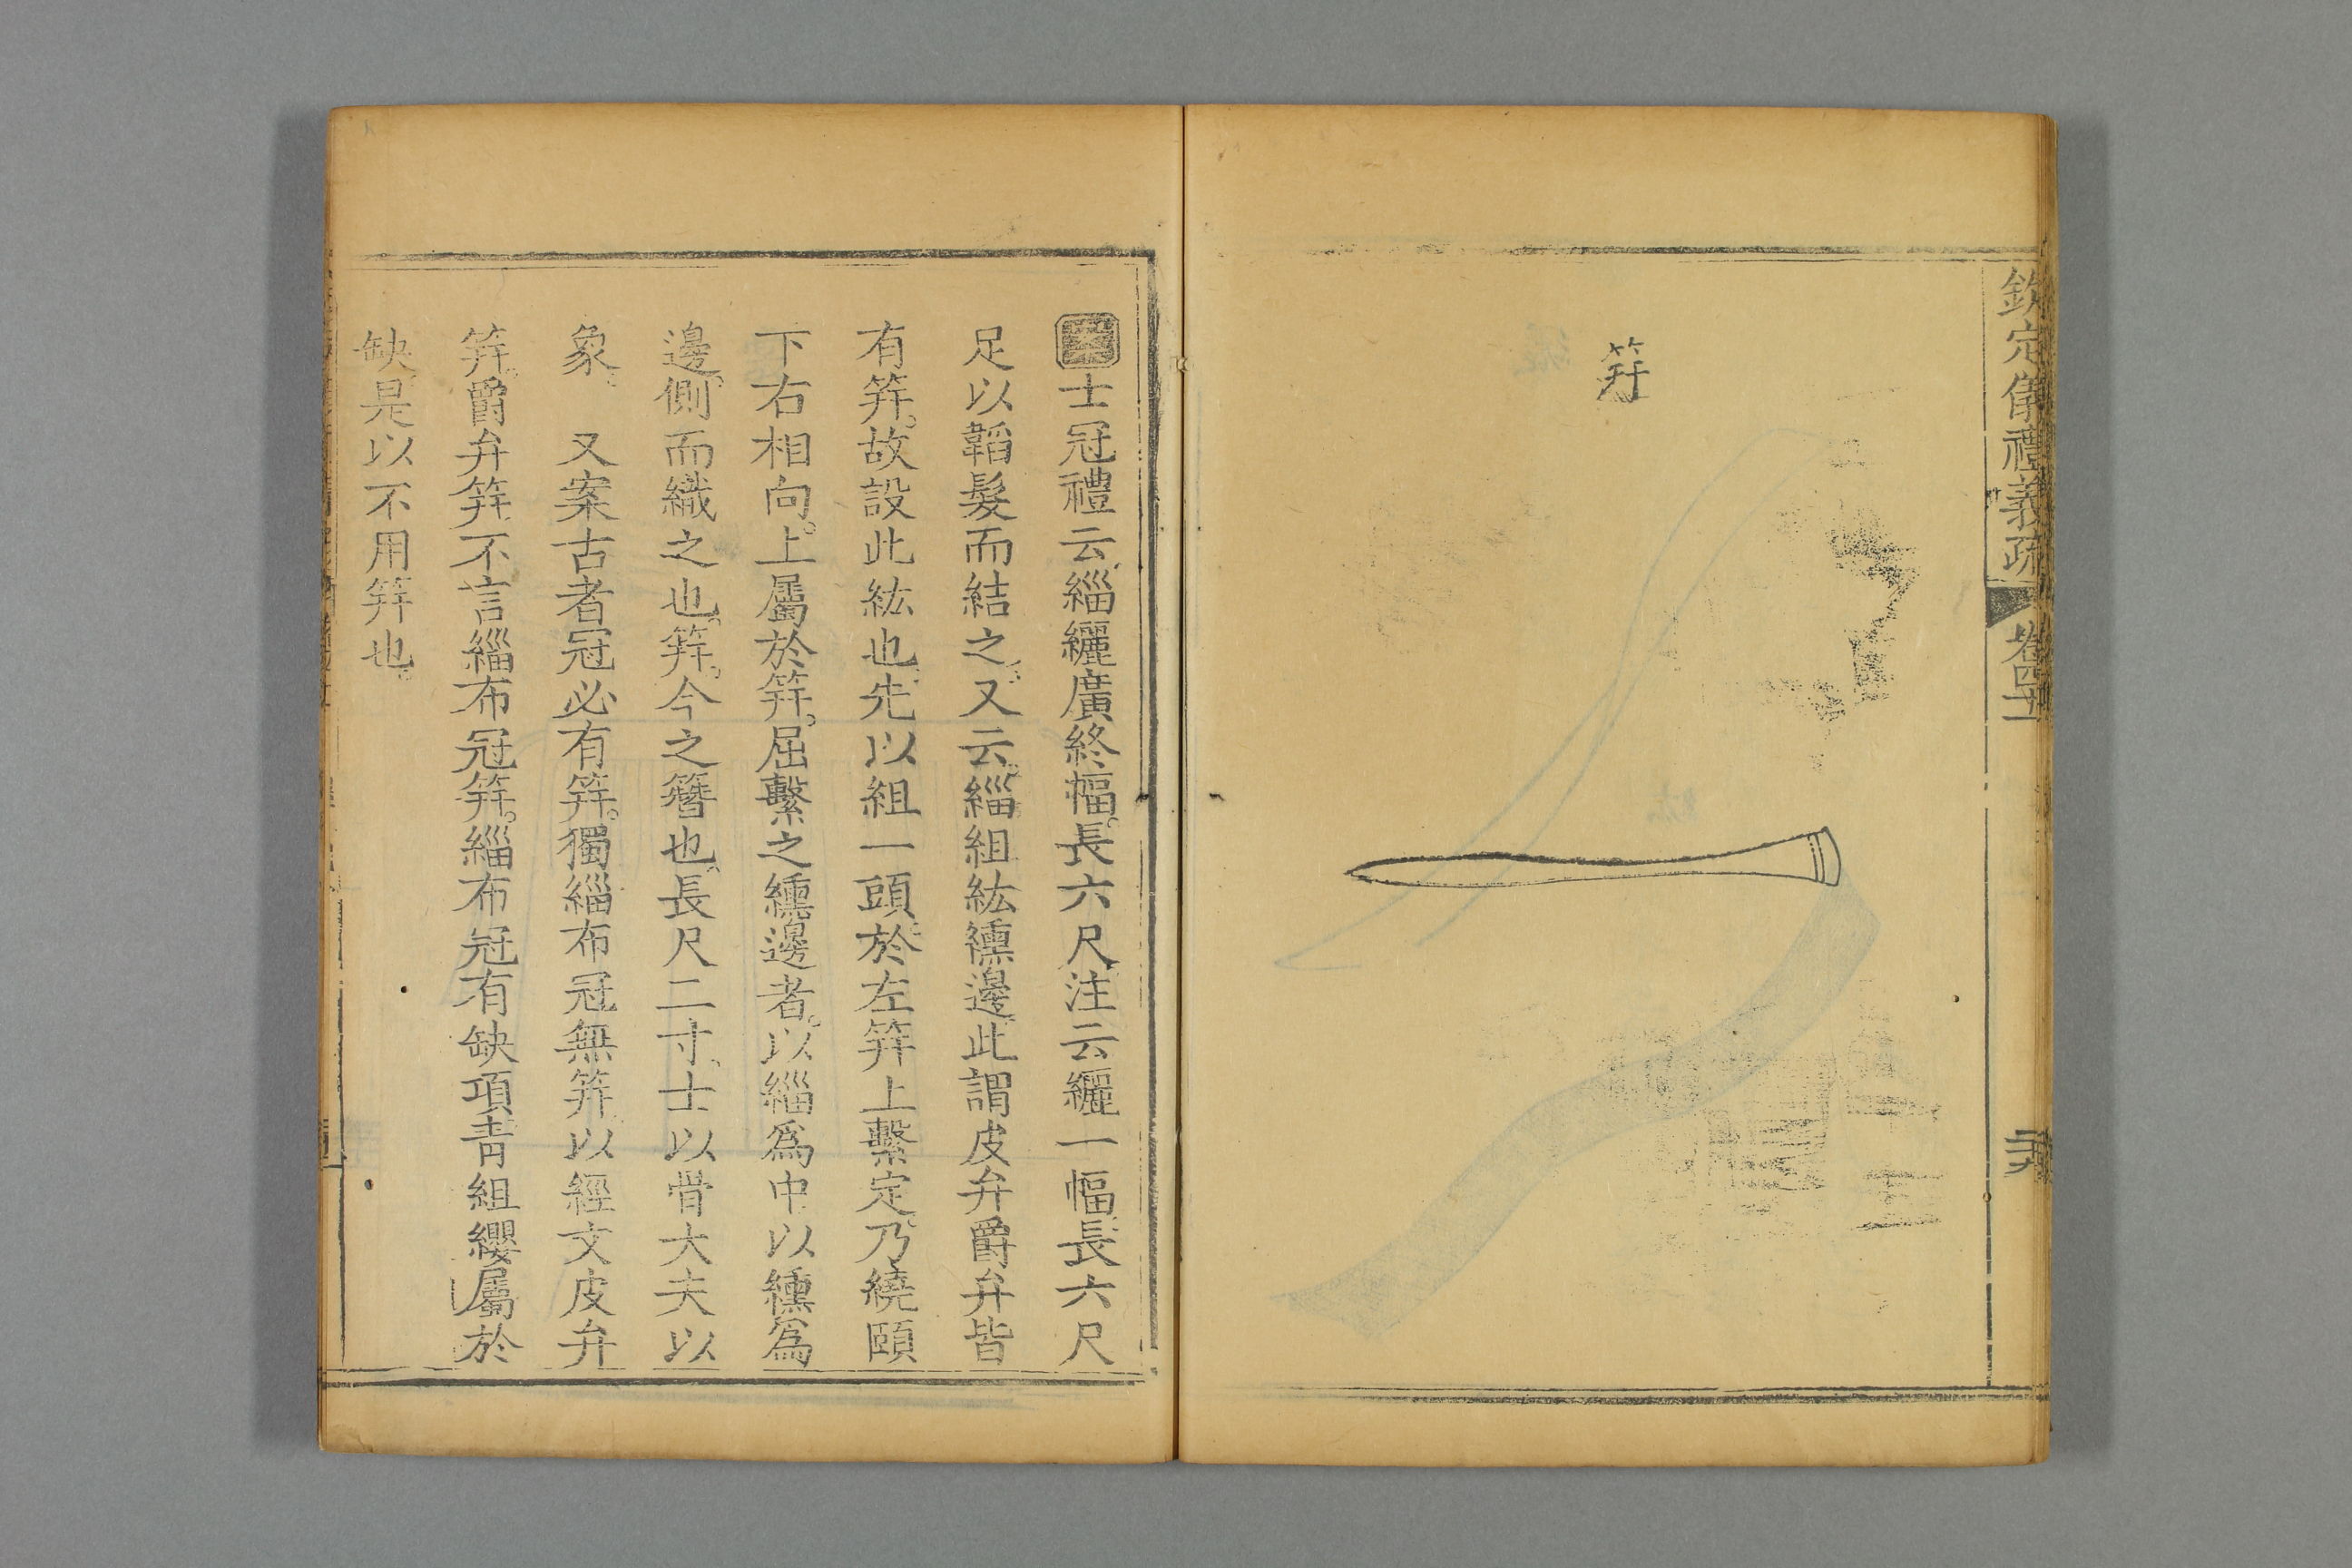 欽定儀禮義疏
笄
案士冠禮云緇纚廣終幅長六尺注云纚一幅長六尺
足以韜髮而結之又云緇組紘纁邊此謂皮弁爵弁皆
有笄故設此紘也先以組一頭於左笄上繫定乃繞頤
下右相向上屬於笄屈繫之纁邊者以緇爲中以纁爲
邊側而織之也笄今之簪也長尺二寸士以骨大夫以
象　又案古者冠必有笄獨緇布冠無笄以經文皮弁
笄爵弁笄不言緇布冠笄緇布冠有缺項青組纓屬於
缺是以不用笄也